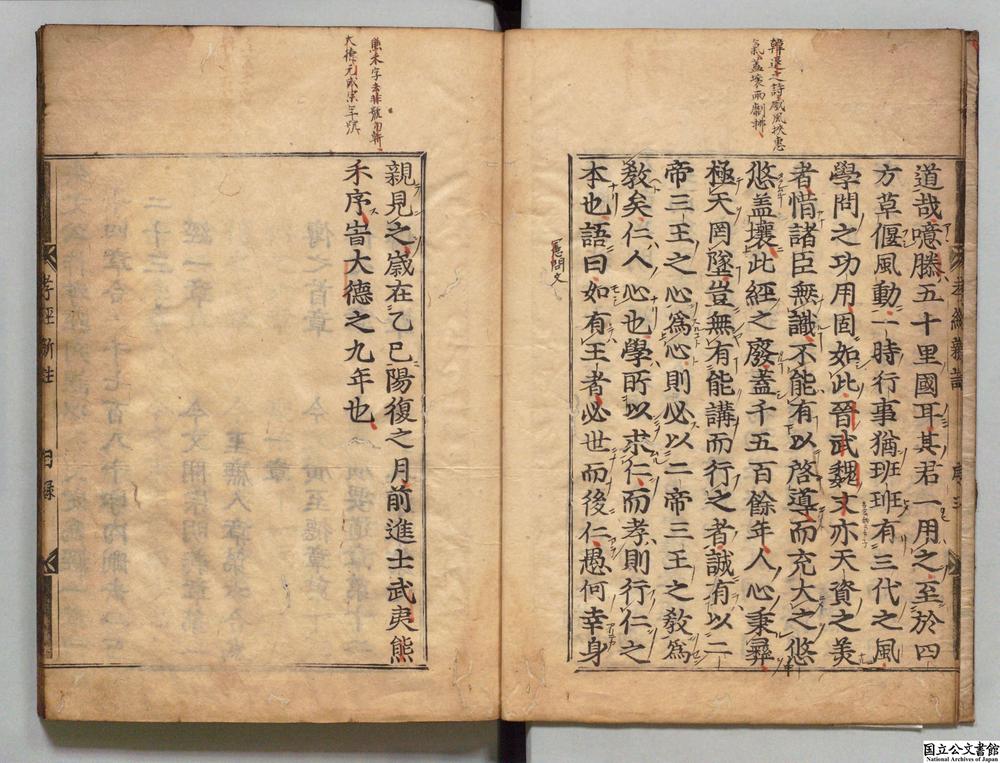 道哉噫滕五十里國耳其君一用之至於四
方草偃風動一時行事猶班班有三代之風
學問之功用固如此晉武魏文亦天資之美
者惜諸臣無識不能有以啓導而充大之悠
悠盖壤此經之廢盖千五百餘年人心秉彛
極天罔墜豈無有能講而行之者誠有以二
帝三王之心爲心則必以二帝三王之敎爲
敎矣仁人心也學所以求仁而孝則行仁之
本也語曰如有王者必世而後仁愚何幸身
親見之歳在乙巳陽復之月前進士武夷熊
禾序旹大德之九年也
韓退之詩感風挾惠
氣盖壤兩劘拂
熊禾字去非
大德元成宗年號
憲問文
序三
孝經新註
目録
国立公文書館
National Archives of Japan